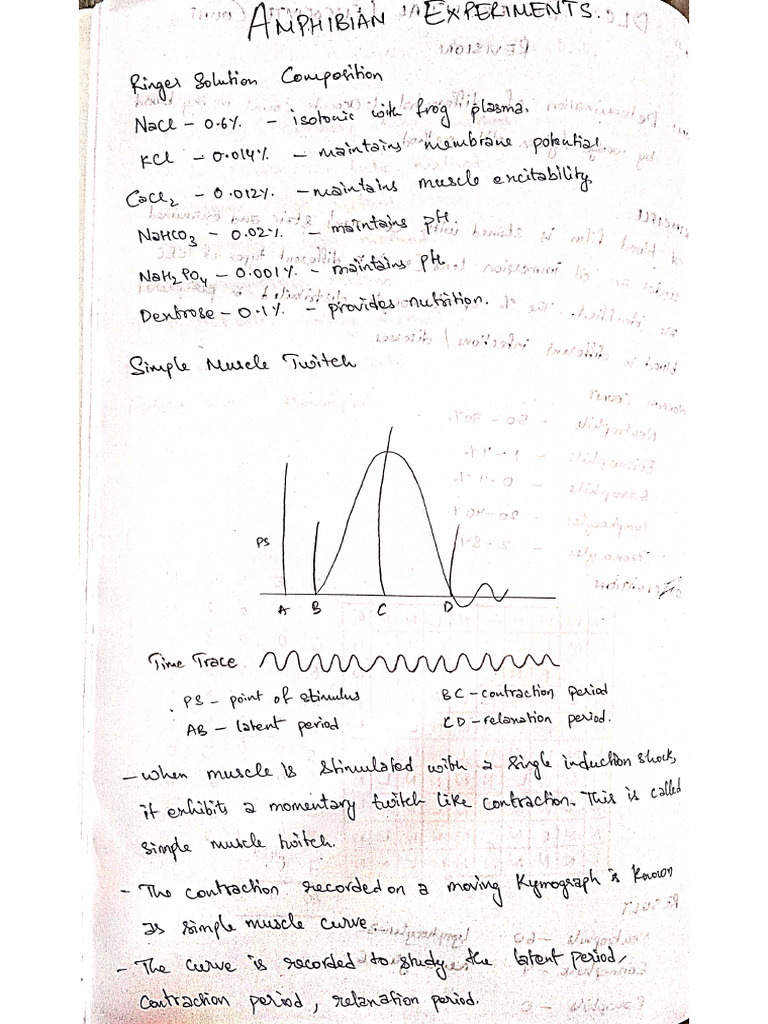 AMPHIBIAN EXPERIMENTS.
Ringer Solution Composition
NaCl - 0.6% - isotonic with frog plasma.
KCl - 0.014% - maintains membrane potential.
CaCl2 - 0.012% - maintains muscle excitability.
NaHCO3 - 0.02% - maintains pH.
NaH2PO4 - 0.001% - maintains pH.
Dextrose - 0.1% - provides nutrition.
Simple Muscle Twitch
PS
A B C D
Time Trace
PS - point of stimulus BC - contraction period
AB - latent period CD - relaxation period.
- When muscle is stimulated with a single induction shock,
it exhibits a momentary twitch like contraction. This is called
simple muscle twitch.
- The contraction recorded on a moving Kymograph is known
as simple muscle curve.
- The curve is recorded to study the latent period,
contraction period, relaxation period.